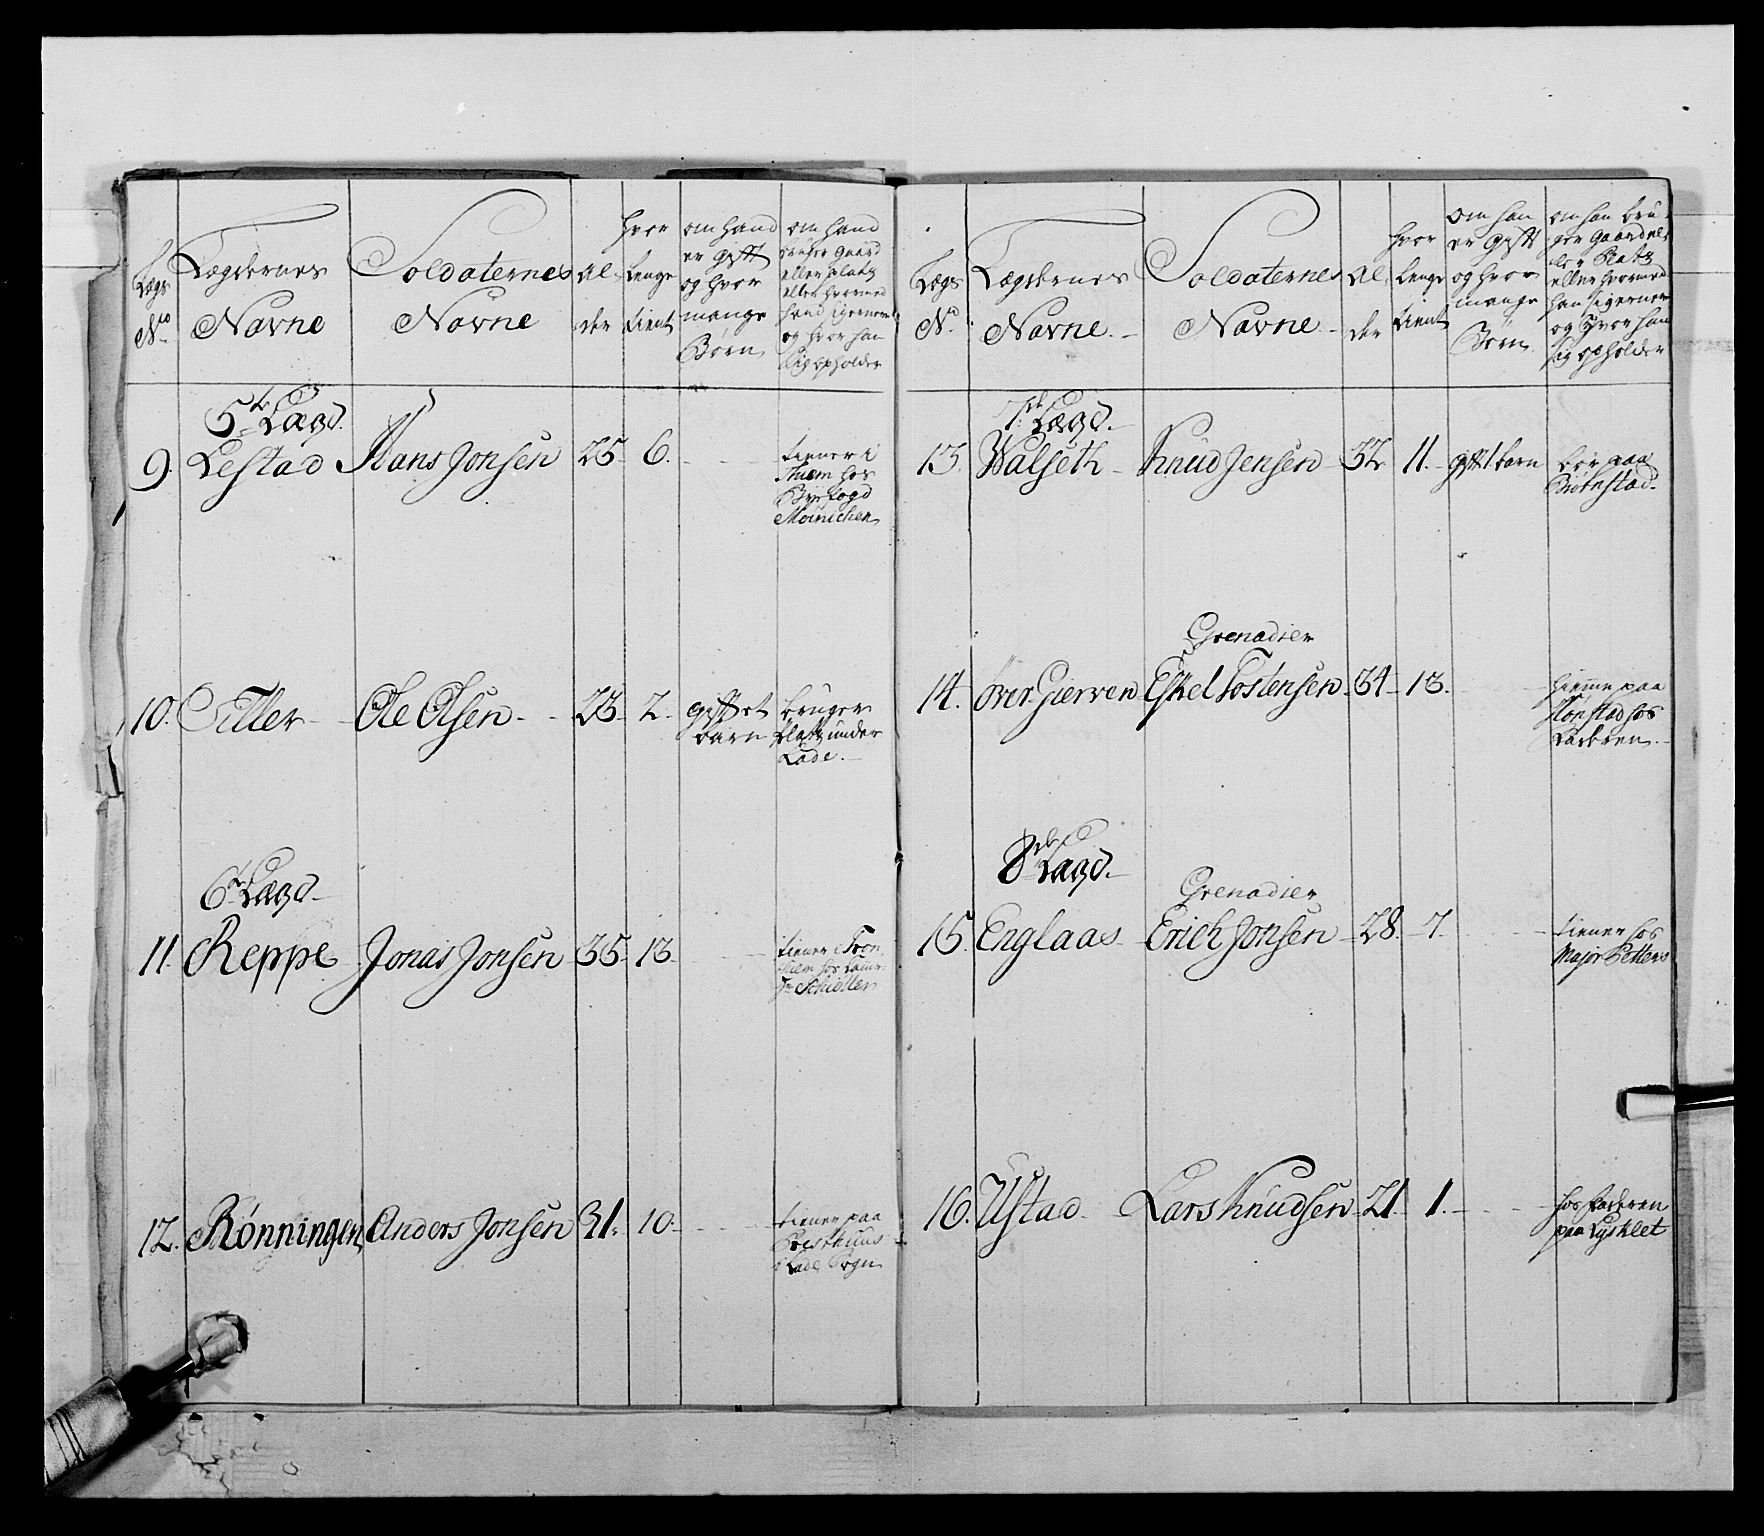 Lægs No
Lægdernes Navne
Soldaternes Navne
Alder
hvor lenge tient
om hand er gift og hvor mange Børn
om hand bruger gaard eller plads eller hvormed hand sig ernerer og hvor han sig opholder
5te Lægd.
9. Lestad Hans Jonsen 25 6.
tiener i
Thiem hos
Byefogd
Møinichen
10. Tiller Ole Olsen 23 2. giftet
barn
bruger
plads under
Lade.
6te Lægd
11. Reppe Jonas Jonsen 35 13
tiener i Tron
hiem hos
Schiøller
12. Rønningen Anders Jonsen 31. 10
tiener paa
Presthuus
i Lade Sogn
Lægs No
Lægdernes Navne
Soldaternes Navne
Alder
hvor lenge tient
om han er gift og hvor mange Børn
om han bruger gaard eller Plads eller hvormed han sig ernerer og hvor han sig opholder
7de Lægd.
13. Walseth Knud Jensen 32 11. gift 1 barn
boer paa
Biørnstad
Grenadier
14. Over Gierven Eskel Tostensen 34 13.
hiemme paa
Konstad hos
Faderen
8de Lægd.
Grenadier
15. Englaas Erich Jonsen 28. 7.
tiener hos
Major Petters
16. Ustad Lars Knudsen 21 1.
hos Faderen
paa Lysklet